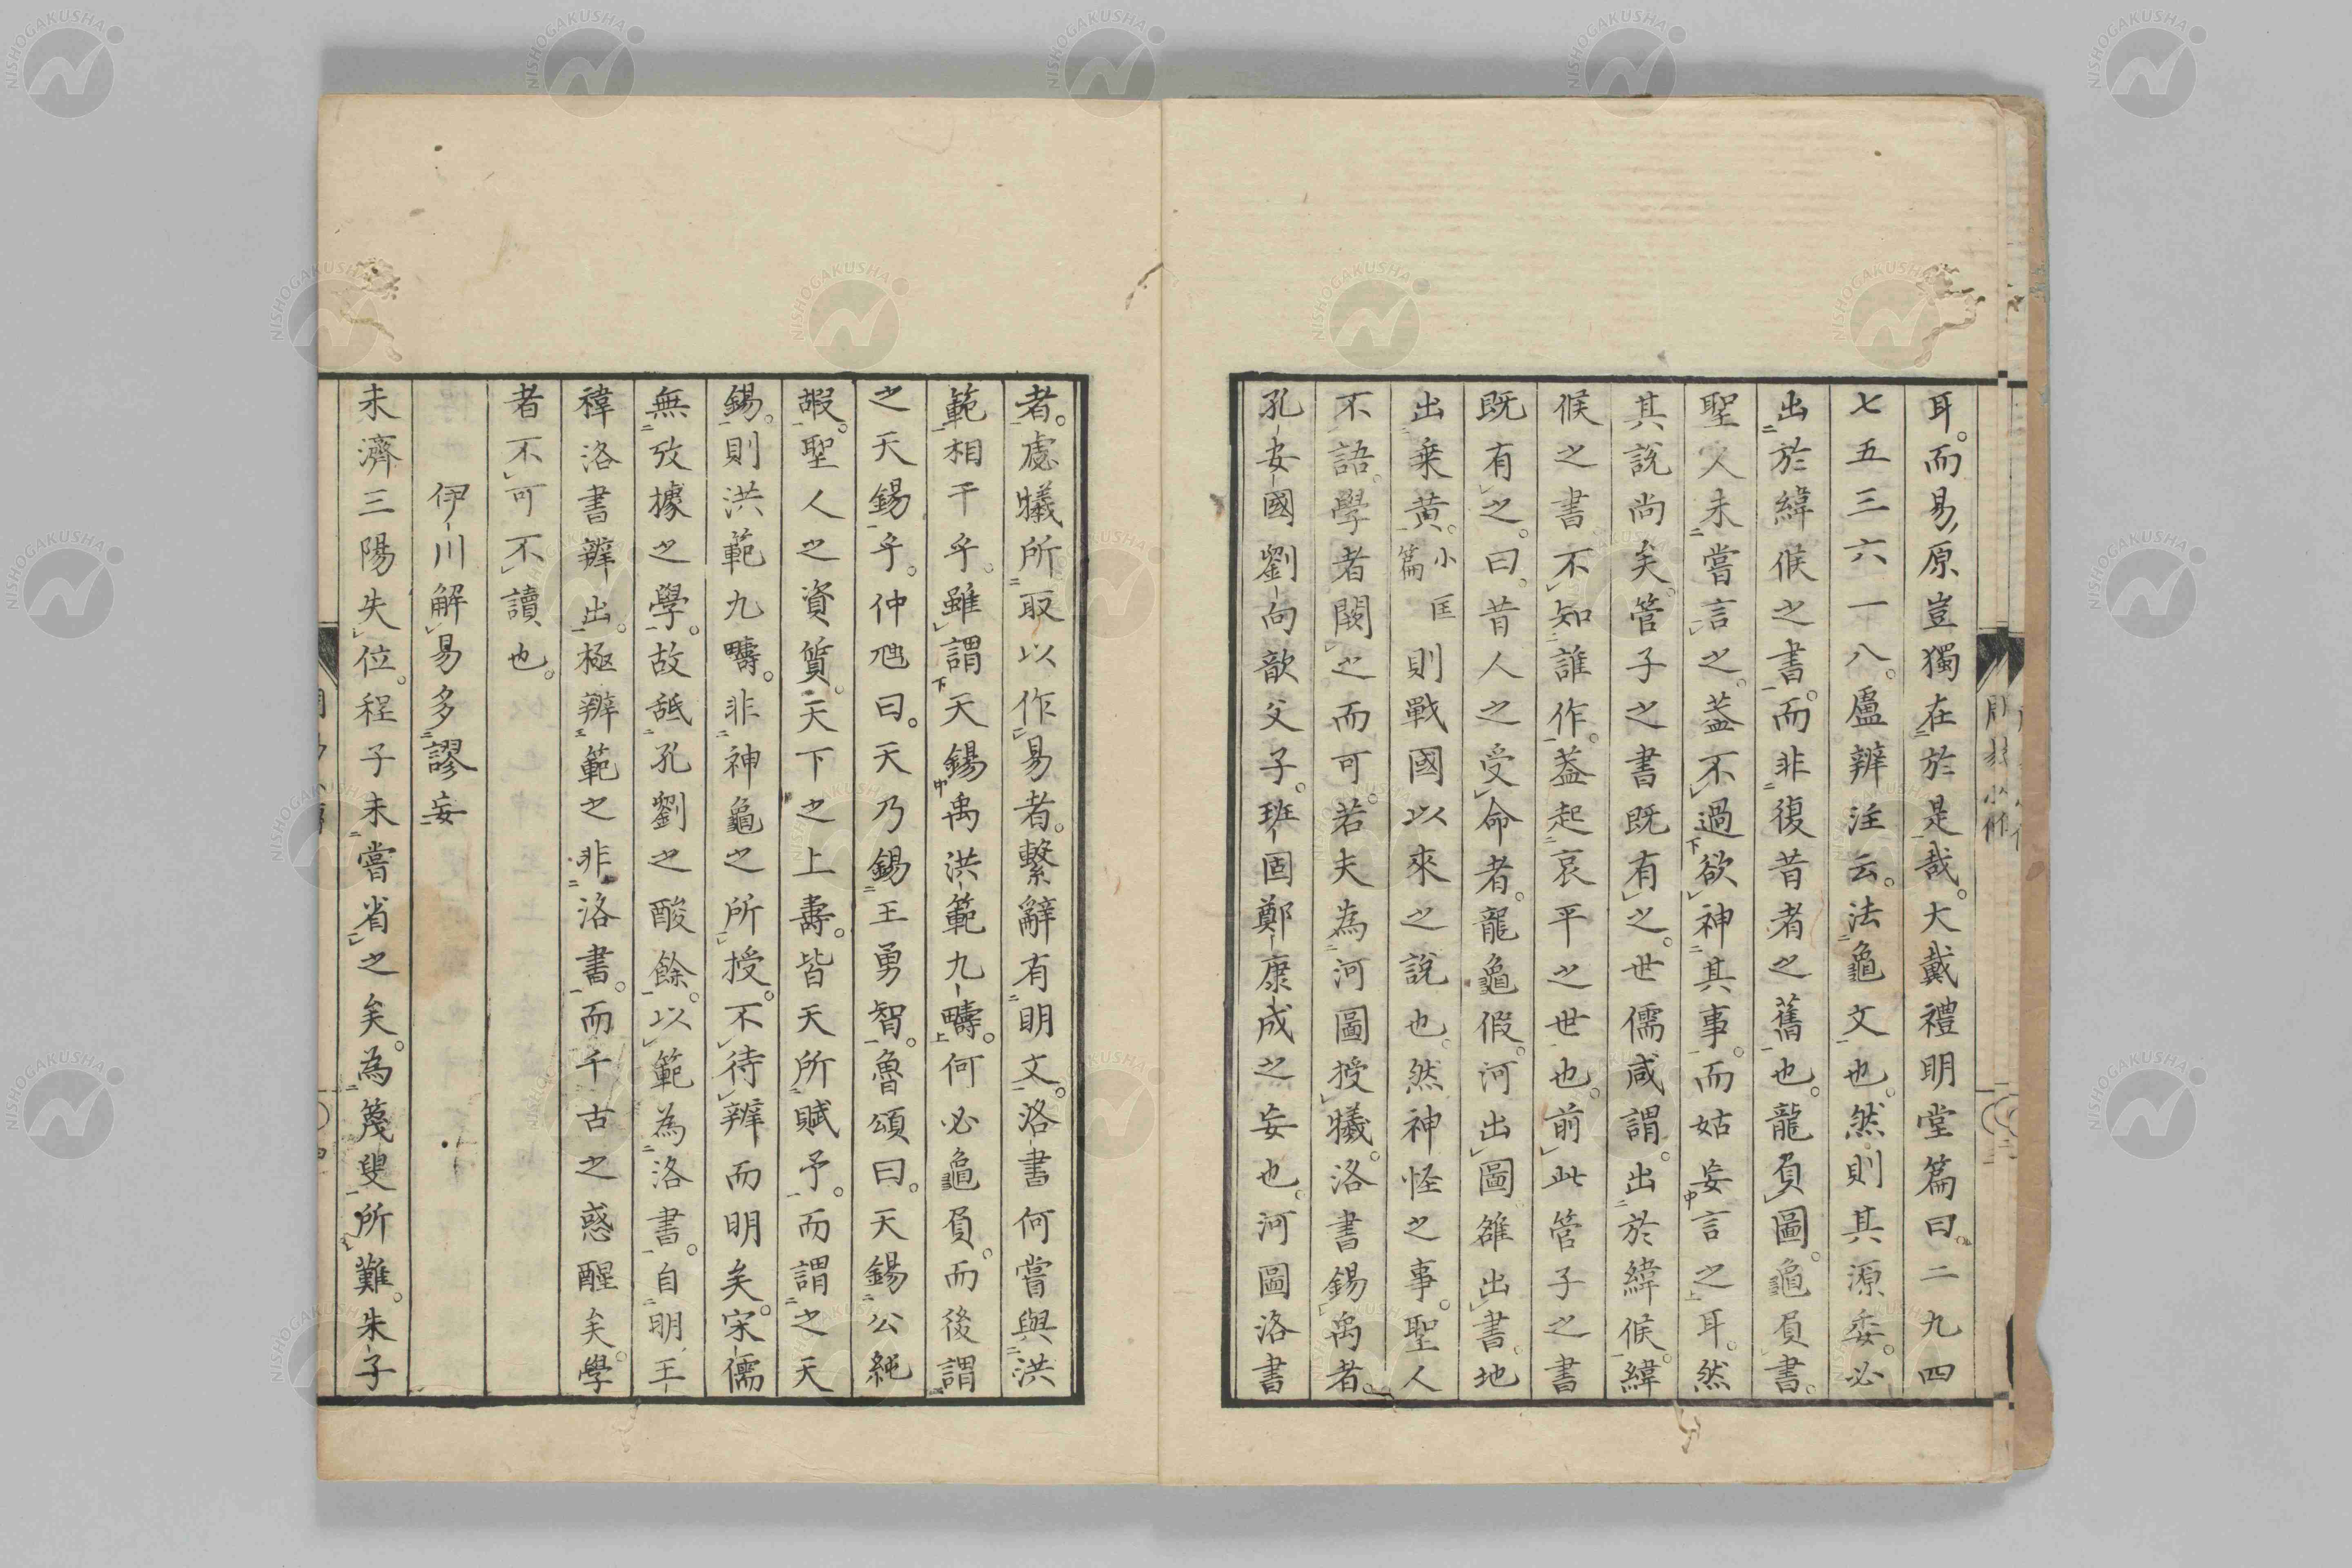 耳。而易原豈獨在於是哉。大戴禮明堂篇曰。二九四
七五三六一八。盧辨注云。法龜文也。然則其源委。必
出於緯候之書。而非復昔者之舊也。龍負圖。龜負書。
聖人未嘗言之。蓋不過欲神其事。而姑妄言之耳。然
其說尚矣。管子之書既有之。世儒咸謂。出於緯候。緯
候之書不知誰作。蓋起哀平之世也。前此管子之書
既有之。曰。昔人之受命者。龍龜假。河出圖。雒出書。地
出乗黄。小匡篇 則戰國以來之說也。然神怪之事。聖人
不語。學者闕之而可。若夫為河圖授犧。洛書錫禹者。
孔安國劉向歆父子。班固鄭康成之妄也。河圖洛書
者。處犧所取以作易者。繫辭有明文。洛書何嘗與洪
範相干乎。雖謂天錫禹洪範九疇。何必龜負。而後謂
之天錫乎。仲虺曰。天乃錫王勇智。魯頌曰。天錫公純
嘏。聖人之資質。天下之上壽。皆天所賦予。而謂之天
錫。則洪範九疇。非神龜之所授。不待辨而明矣。宋儒
無攷據之學。故舐孔劉之酸餘。以範為洛書。自明王
褘洛書辨出。極辨範之非洛書。而千古之惑醒矣。學
者不可不讀也。
伊川解易多謬妄
未濟三陽失位。程子未嘗省之矣。為篾叟所難。朱子